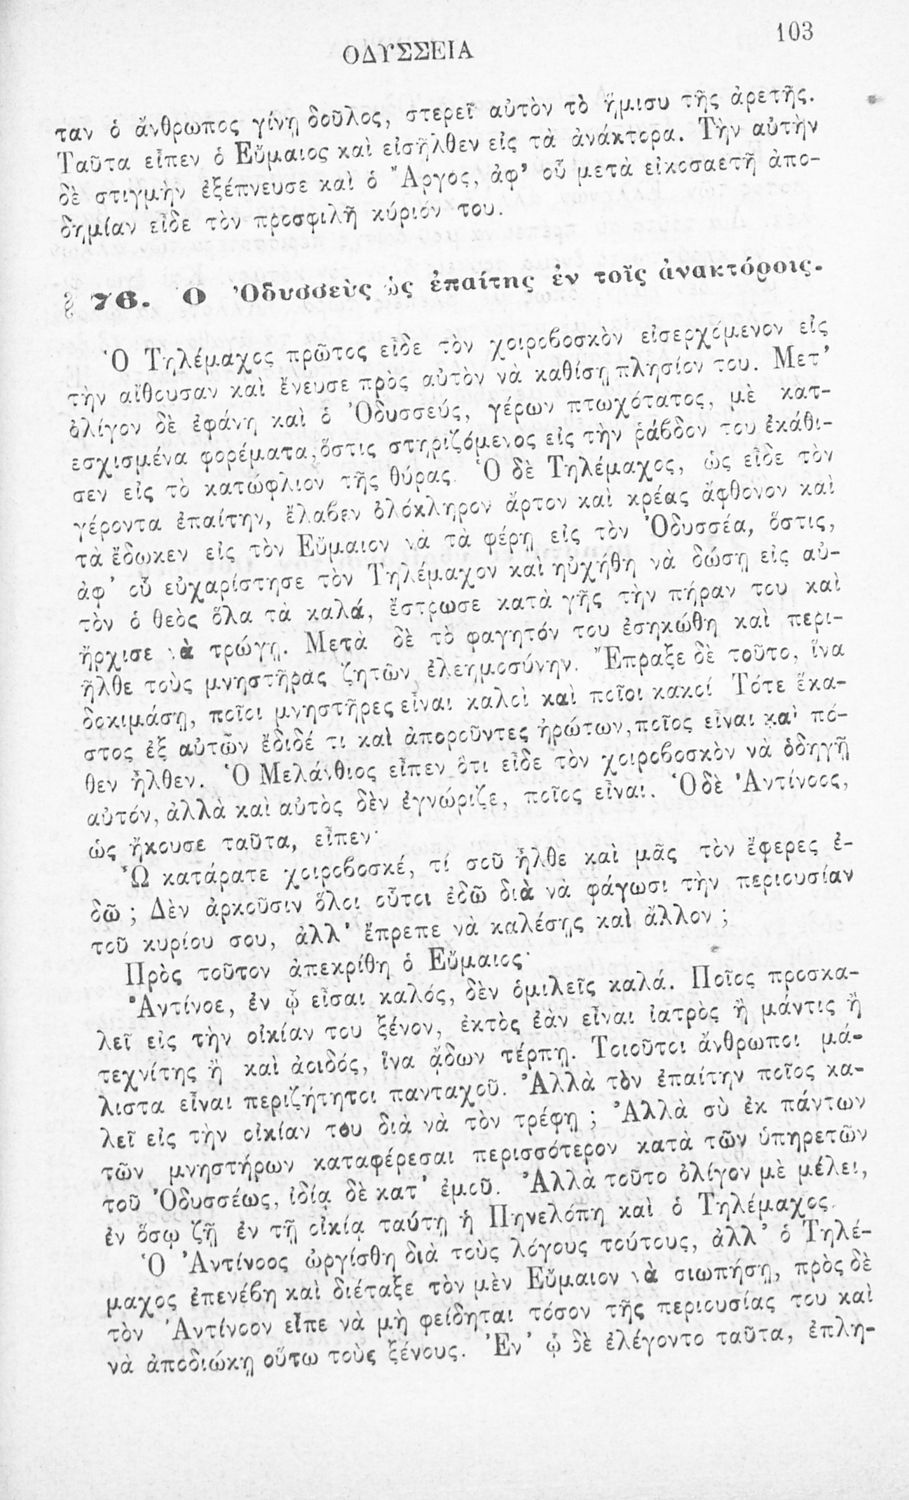 ΟΔΥΣΣΕΙΑ
103
ταν ὁ ἄνθρωπος γίνῃ δοῦλος, στερεῖ αὐτὸν τὸ ἥμισυ τῆς ἀρετῆς.
Ταῦτα εἶπεν ὁ Εὔμαιος καὶ εἰσῆλθεν εἰς τὰ ἀνάκτορα. Τὴν αὐτὴν
δὲ στιγμὴν ἐξέπνευσε καὶ ὁ Ἄργος, ἀφ' οὗ μετὰ εἰκοσαετῆ ἀπο-
δημίαν εἶδε τὸν προσφιλῆ κύριόν του.
§ 76. Ο Ὀδυσσεὺς ὡς ἐπαίτης ἐν τοῖς ἀνακτόροις.
Ὁ Τηλέμαχος πρῶτος εἶδε τὸν χοιροβοσκὸν εἰσερχόμενον εἰς
τὴν αἴθουσαν καὶ ἔνευσε πρὸς αὐτὸν νὰ καθίσῃ πλησίον του. Μετ'
ὀλίγον δὲ ἐφάνη καὶ ὁ Ὀδυσσεύς, γέρων πτωχότατος, μὲ κατ-
εσχισμένα φορέματα, ὅστις στηριζόμενος εἰς τὴν ῥάβδον του ἐκάθι-
σεν εἰς τὸ κατώφλιον τῆς θύρας. Ὁ δὲ Τηλέμαχος, ὡς εἶδε τὸν
γέροντα ἐπαίτην, ἔλαβεν ὁλόκληρον ἄρτον καὶ κρέας ἄφθονον καὶ
τὰ ἔδωκεν εἰς τὸν Εὔμαιον νὰ τὰ φέρῃ εἰς τὸν Ὀδυσσέα, ὅστις,
ἀφ' οὗ εὐχαρίστησε τὸν Τηλέμαχον καὶ ηὐχήθη νὰ δώσῃ εἰς αὐ-
τὸν ὁ θεὸς ὅλα τὰ καλά, ἔστρωσε κατὰ γῆς τὴν πήραν του καὶ
ἤρχισε νὰ τρώγῃ. Μετὰ δὲ τὸ φαγητόν του ἐσηκώθη καὶ περι-
ῆλθε τοὺς μνηστῆρας ζητῶν ἐλεημοσύνην. Ἔπραξε δὲ τοῦτο, ἵνα
δοκιμάσῃ, ποῖοι μνηστῆρες εἶναι καλοὶ καὶ ποῖοι κακοί Τότε ἕκα-
στος ἐξ αὐτῶν ἔδιδέ τι καὶ ἀποροῦντες ἠρώτων, ποῖος εἶναι καὶ πό-
θεν ἦλθεν. Ὁ Μελάνθιος εἶπεν ὅτι εἶδε τὸν χοιροβοσκὸν νὰ ὁδηγῇ
αὐτόν, ἀλλὰ καὶ αὐτὸς δὲν ἐγνώριζε, ποῖος εἶναι. Ὁ δὲ Ἀντίνοος,
ὡς ἤκουσε ταῦτα, εἶπεν·
Ὦ κατάρατε χοιροβοσκέ, τί σοῦ ἦλθε καὶ μᾶς τὸν ἔφερες ἐ-
δῶ ; Δὲν ἀρκοῦσιν ὅλοι οὗτοι ἐδῶ διὰ νὰ φάγωσι τὴν περιουσίαν
τοῦ κυρίου σου, ἀλλ' ἔπρεπε νὰ καλέσῃς καὶ ἄλλον ;
Πρὸς τοῦτον ἀπεκρίθη ὁ Εὔμαιος·
Ἀντίνοε, ἐν ᾧ εἶσαι καλός, δὲν ὁμιλεῖς καλά. Ποῖος προσκα-
λεῖ εἰς τὴν οἰκίαν του ξένον, ἐκτὸς ἐὰν εἶναι ἰατρὸς ἢ μάντις ἢ
τεχνίτης ἢ καὶ ἀοιδός, ἵνα ᾄδων τέρπῃ. Τοιοῦτοι ἄνθρωποι μά-
λιστα εἶναι περιζήτητοι πανταχοῦ. Ἀλλὰ τὸν ἐπαίτην ποῖος κα-
λεῖ εἰς τὴν οἰκίαν του διὰ νὰ τὸν τρέφῃ ; Ἀλλὰ σὺ ἐκ πάντων
τῶν μνηστήρων καταφέρεσαι περισσότερον κατὰ τῶν ὑπηρετῶν
τοῦ Ὀδυσσέως, ἰδίᾳ δὲ κατ' ἐμοῦ. Ἀλλὰ τοῦτο ὀλίγον μὲ μέλει,
ἐν ὅσῳ ζῇ ἐν τῇ οἰκίᾳ ταύτῃ ἡ Πηνελόπη καὶ ὁ Τηλέμαχος.
Ὁ Ἀντίνοος ὠργίσθη διὰ τοὺς λόγους τούτους, ἀλλ' ὁ Τηλέ-
μαχος ἐπενέβη καὶ διέταξε τὸν μὲν Εὔμαιον νὰ σιωπήσῃ, πρὸς δὲ
τὸν Ἀντίνοον εἶπε νὰ μὴ φείδηται τόσον τῆς περιουσίας του καὶ
νὰ ἀποδιώκῃ οὕτω τοὺς ξένους. Ἐν ᾧ δὲ ἐλέγοντο ταῦτα, ἐπλη-